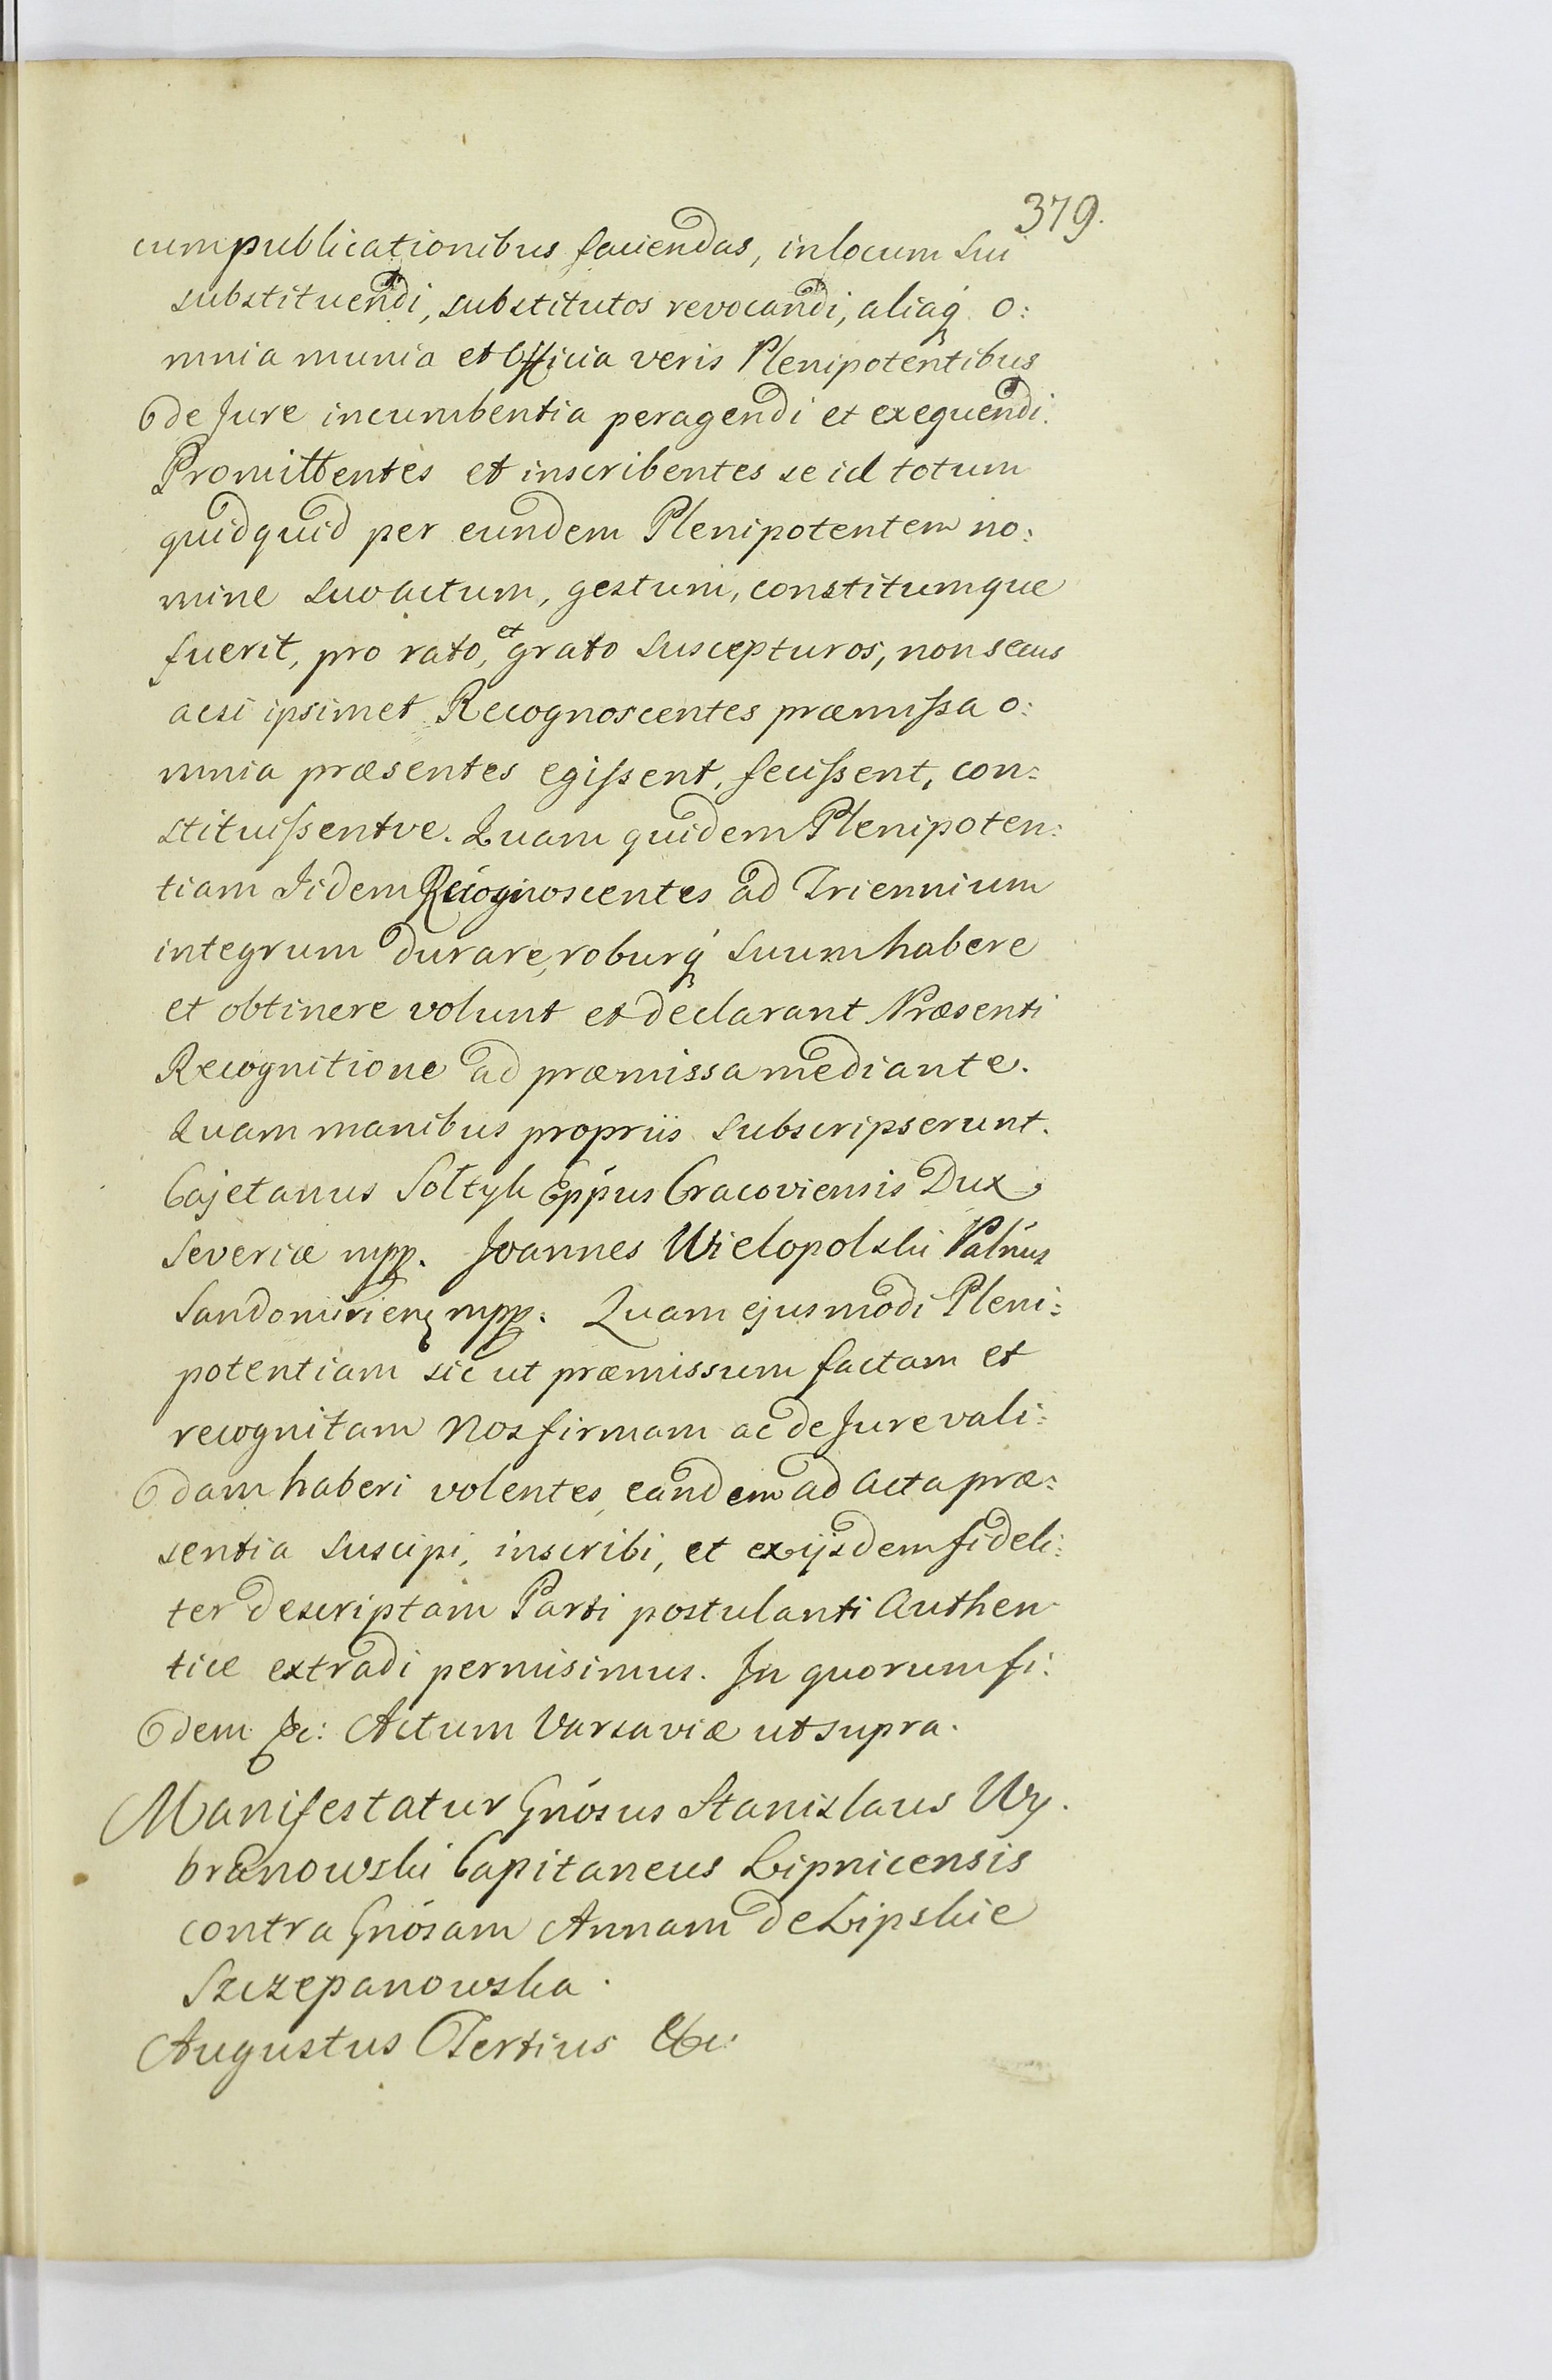 379.
cum publicationibus faciendas, in locum sui
substituendi, substitutos revocandi, aliaq́ o:
mnia munia et Officia veris Plenipotentibus
de Jure incumbentia peragendi et exequendi.
Promittentes et inscribentes se id totum
quidquid per eundem Plenipotentem no:
mine suo actum, gestum, constitumque
fuerit, pro rato, et grato suscepturos, non secus
acsi ipsimet Recognoscentes præmissa o:
mnia præsentes egissent, fecissent, con:
stituissentve. Quam quidem Plenipoten:
tiam Iidem Recognoscentes ad Triennium
integrum durare, roburq́ suum habere
et obtinere volunt et declarant Præsenti
Recognitione ad præmissa mediante.
Quam manibus propriis subscripserunt.
Cajetanus Sołtyk Eppus Cracoviensis Dux
Severiæ mpp. Joannes Wielopolski Palnus
Sandomirien mpp. Quam ejusmodi Pleni:
potentiam sic ut præmissum factam et
recognitam Nos firmam ac de Jure vali:
dam haberi volentes, eandem ad Acta præ:
sentia suscipi, inscribi, et ex ijsdem fideli:
ter descriptam Parti postulanti Authen
tice extradi permisimus. In quorum fi:
dem &c: Actum Varsaviæ ut supra.
Manifestatur Gnosus Stanislaus Wy.
branowski Capitaneus Lipnicensis
contra Gnosam Annam de Lipskie
Szczepanowska.
Augustus Tertius &c: